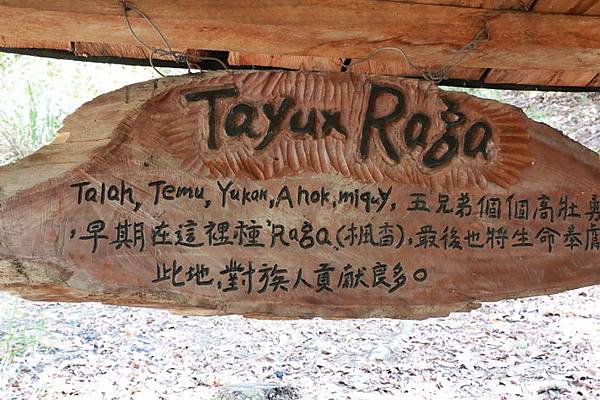 Tayux Raga
Talah, Temu, Yukan, Ahok, miquy, 五兄弟個個高壯勇
,早期在這裡種'Raga(楓香),最後也將生命奉獻
此地,對族人貢獻良多。